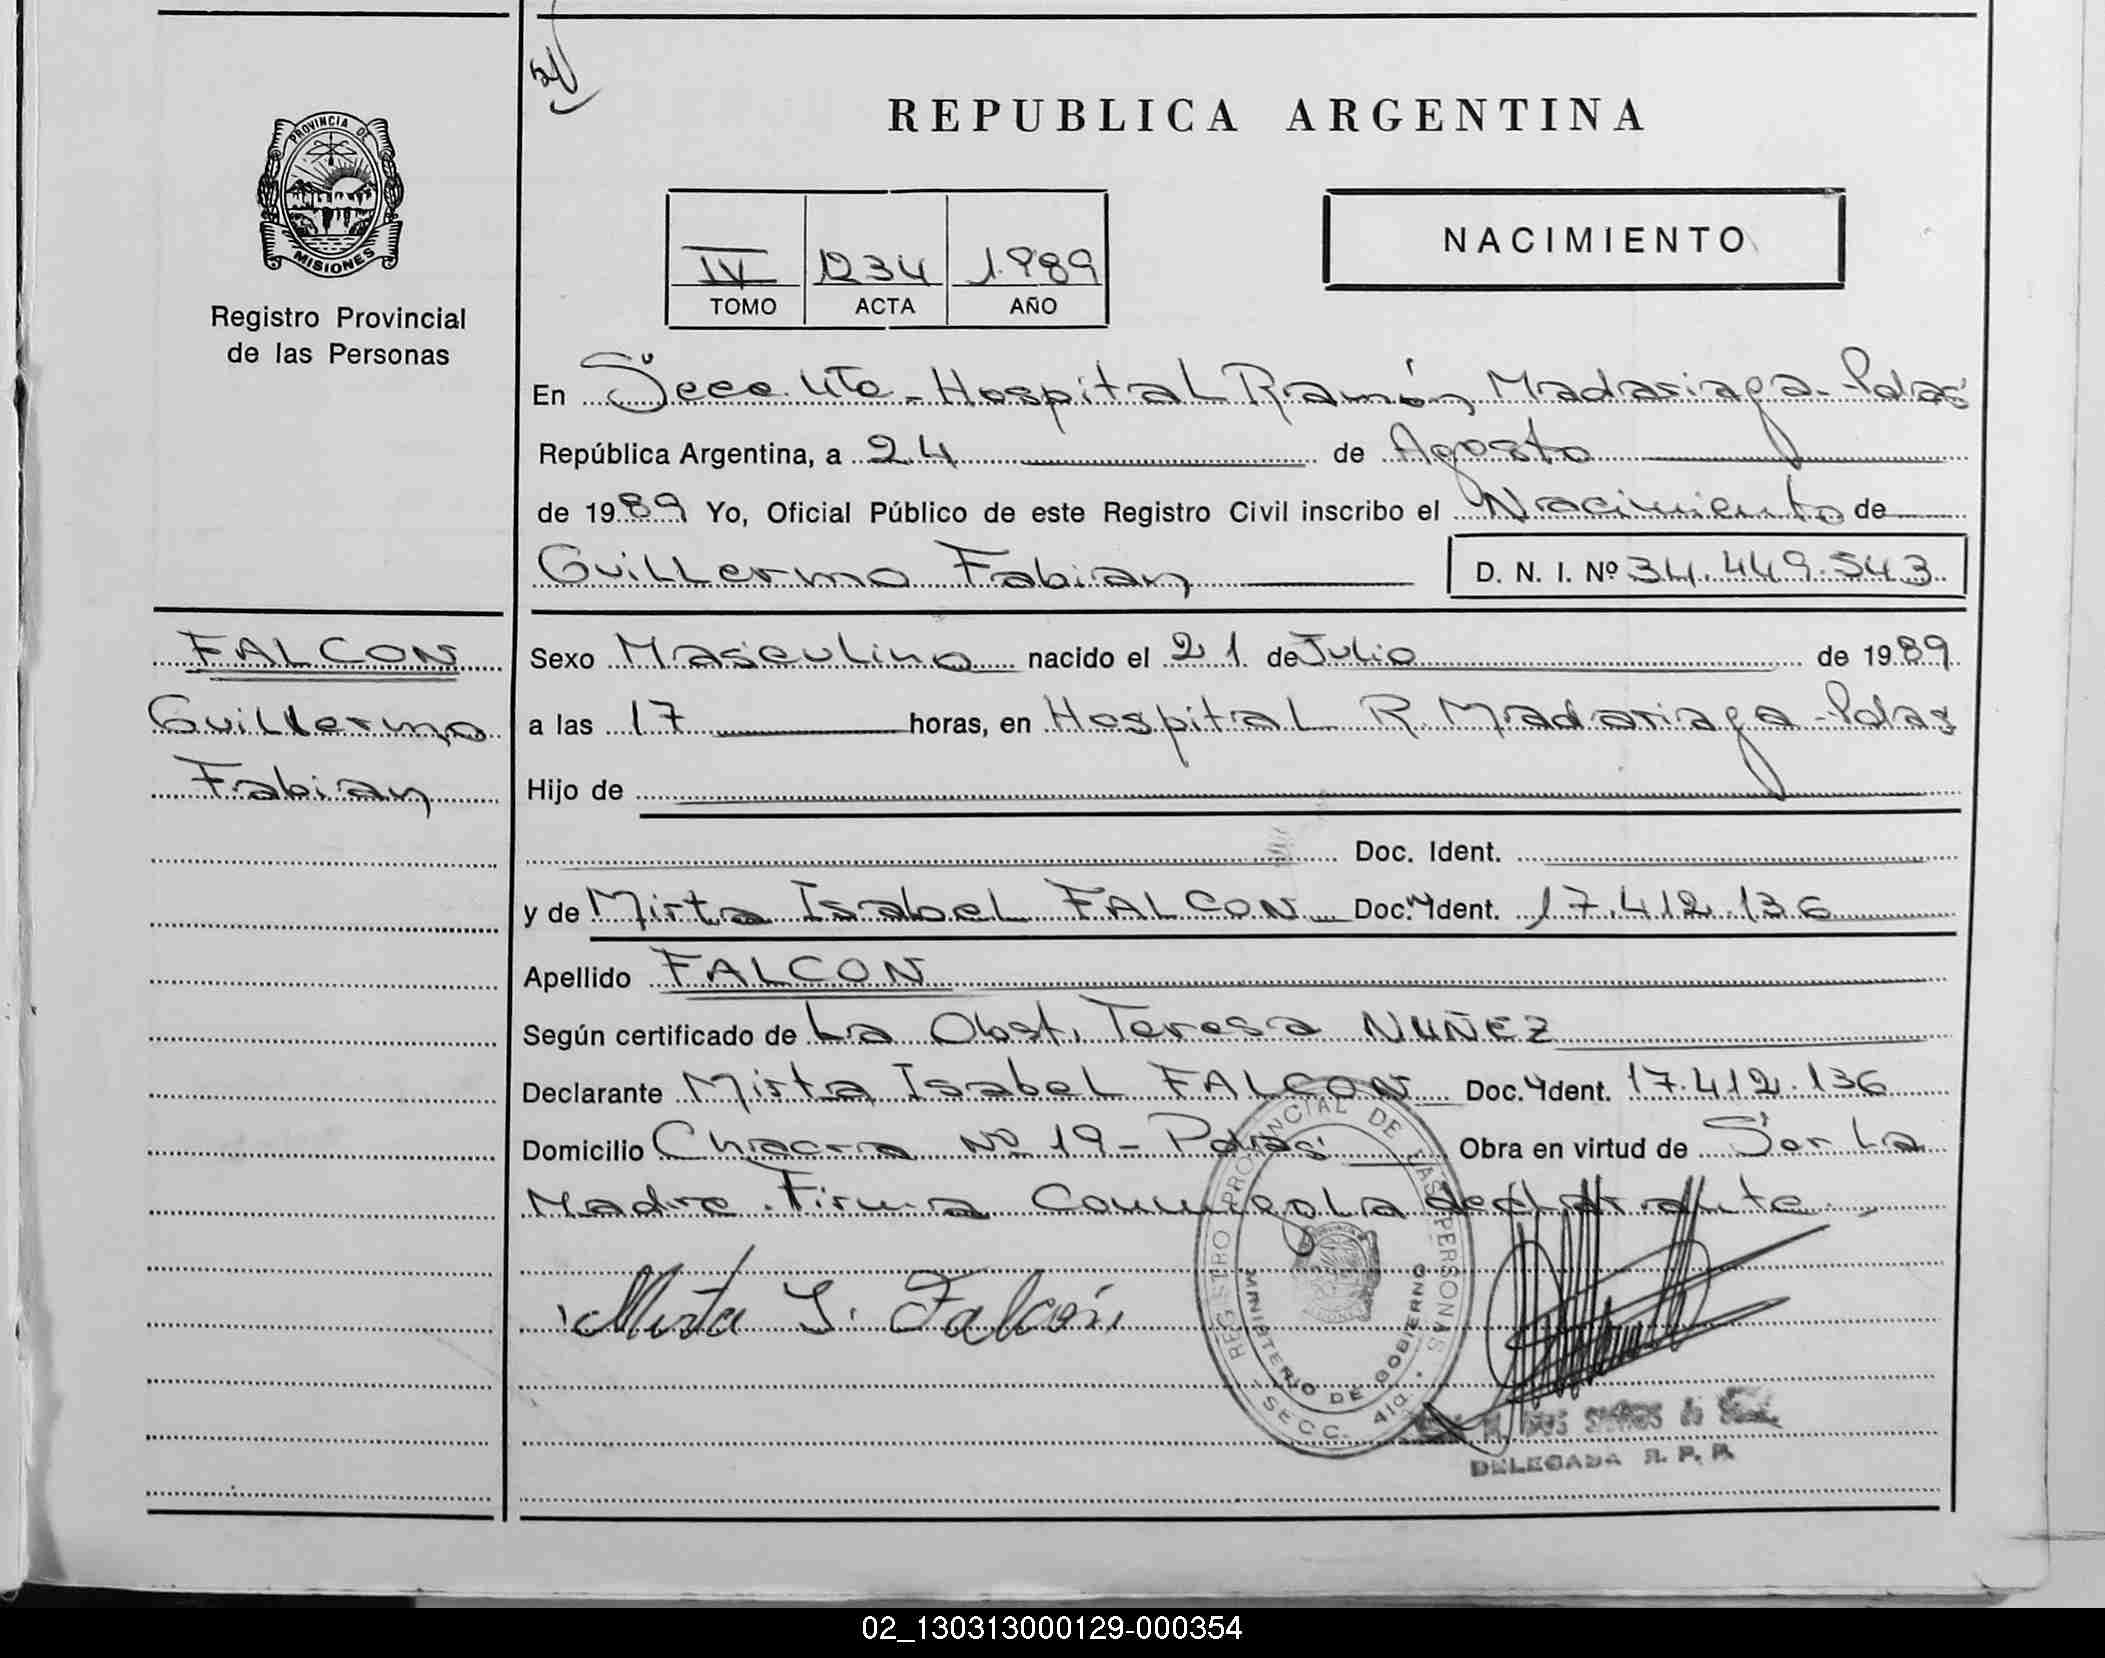 REPUBLICA ARGENTINA
PROVINCIA DE
MISIONES
Registro Provincial
de las Personas
NACIMIENTO
IV 1234 1.989
TOMO ACTA AÑO
En Secc. 4ta - Hospital Ramón Madariaga - Pdas
República Argentina, a 24 de Agosto
de 1989 Yo, Oficial Público de este Registro Civil inscribo el Nacimiento de
Guillermo Fabian D. N. I. Nº 34.449.543
FALCON
Guillermo
Fabian
Sexo Masculino nacido el 21 de Julio de 1989
a las 17 horas, en Hospital R. Madariaga - Pdas
Hijo de
Doc. Ident.
y de Mirta Isabel FALCON Doc. Ident. 17.412.136
Apellido FALCON
Según certificado de La Obst. Teresa NUÑEZ
Declarante Mirta Isabel FALCON Doc. Ident. 17.412.136
Domicilio Chacra Nº 19 - Pdas Obra en virtud de Ser La
Madre. Firma Conmigo La declarante
Mirta I. Falcón
REGISTRO PROVINCIAL DE LAS PERSONAS
MINISTERIO DE GOBIERNO
SECC. 4ta
DELEGADA R. P. P.
02_130313000129-000354